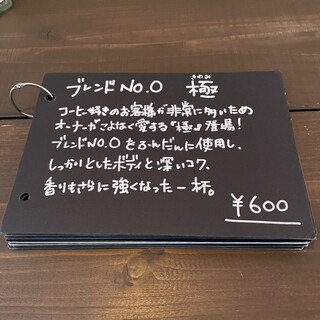 ブレンドNO.0 極
きわみ
コーヒー好きのお客様が非常に多いため
オーナーがこよなく愛する『極』登場!
ブレンドNO.0をふんだんに使用し、
しっかりとしたボディと深いコク、
香りもさらに強くなった一杯。
¥600